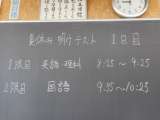 夏休み明けテスト 1日目
1限目 英語 理科 8:25 〜 9:25
2限目 国語 9:35 〜 10:25